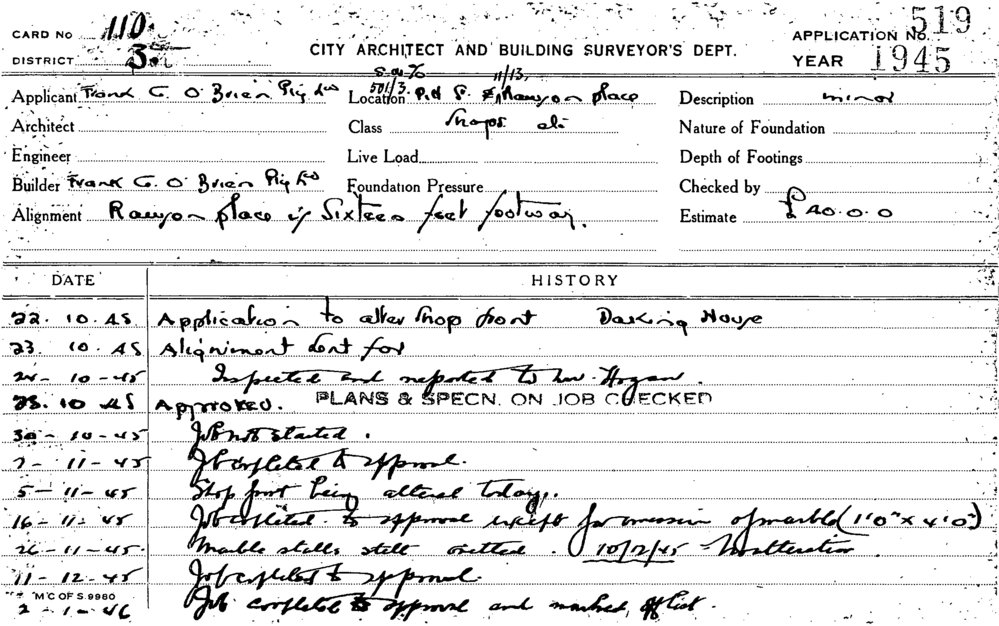 CARD No 110.
APPLICATION No. 519
DISTRICT 3
CITY ARCHITECT AND BUILDING SURVEYOR'S DEPT.
YEAR 1945
501/3. 11/13.
Applicant Frank G. O'Brien Pty Ltd Location Pitt S. & Rawson place Description minor
Architect Class Shops alt Nature of Foundation
Engineer Live Load Depth of Footings
Builder Frank G. O'Brien Pty Ltd Foundation Pressure Checked by
Alignment Rawson place is Sixteen feet footway. Estimate £40.0.0
DATE HISTORY
22. 10. 45 Application to alter shop front Darking House
23. 10. 45 Alignment sent for
24-10-45 Inspected and reported to Mr Hogan.
25. 10 45 Approved. PLANS & SPECN. ON JOB CHECKED
30-10-45 Job not started.
2-11-45 Job completed to approval.
5-11-45 Shop front being altered today.
16-11-45 Job completed to approval except for omission of marble (1'0" x 4'0")
26-11-45. Marble still omitted. 10/12/45 - No alteration
11-12-45 Job completed to approval.
M'C OF S. 9980
2-1-46 Job completed to approval and marked off list.